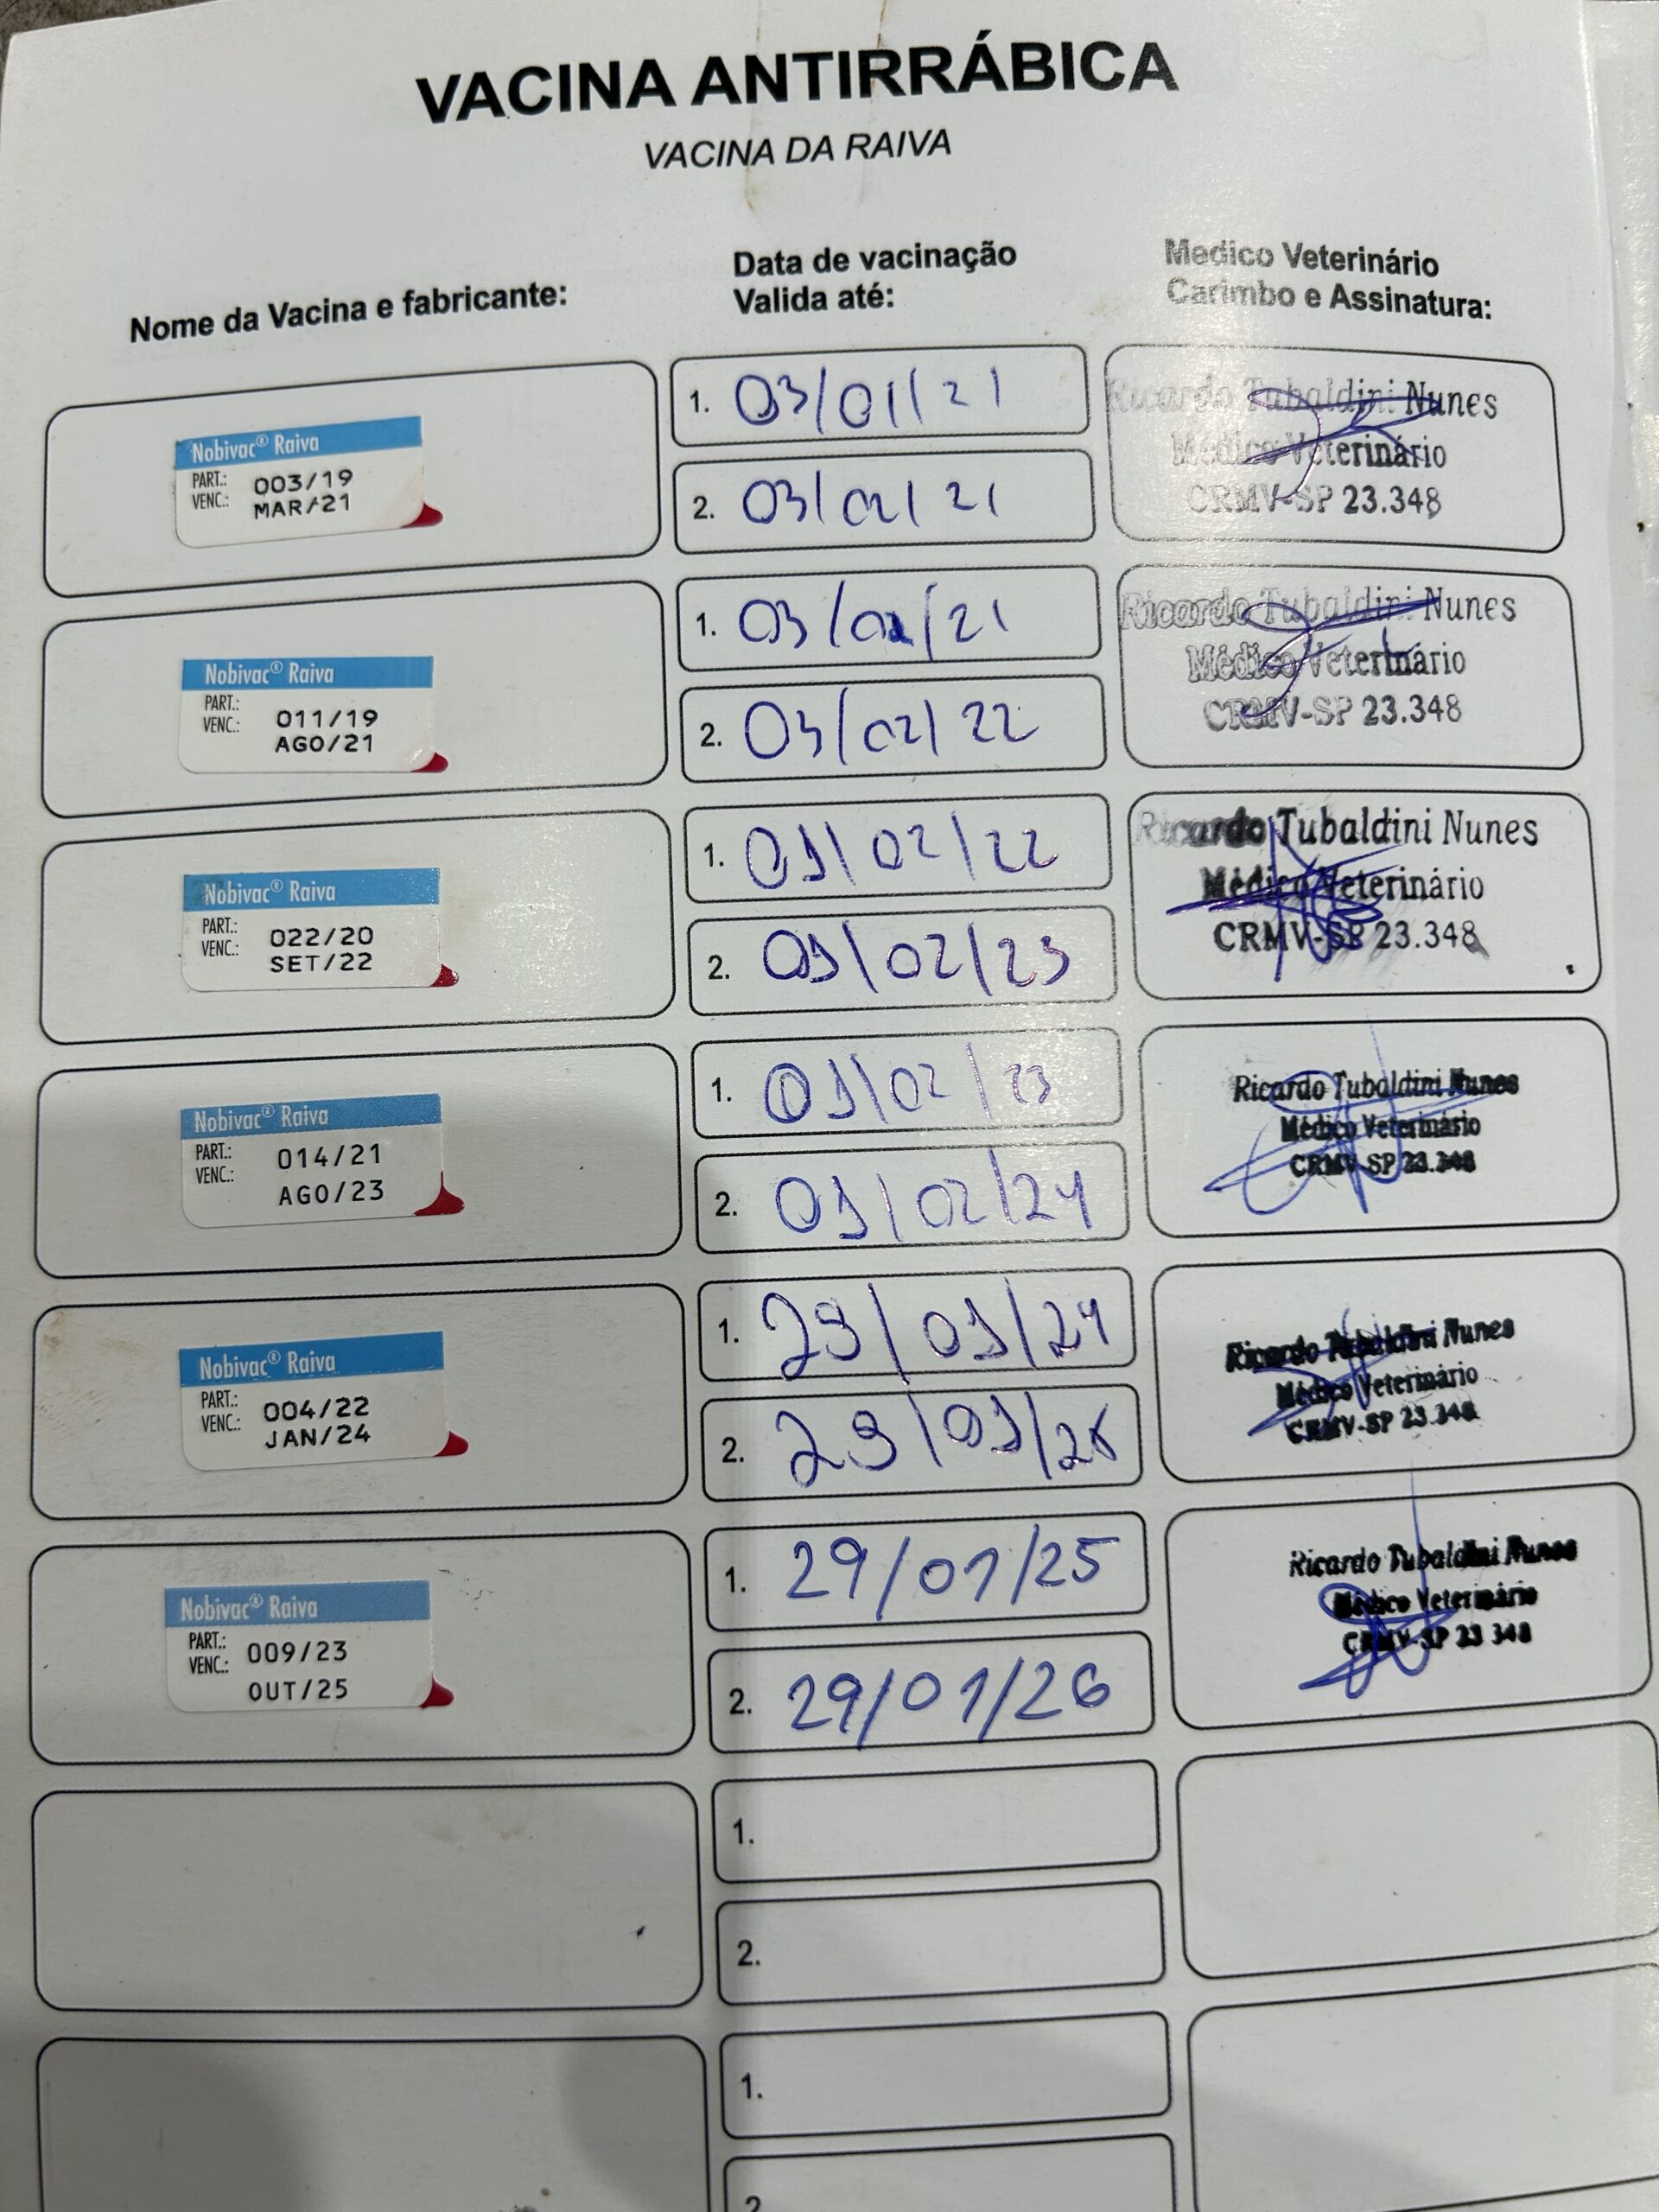 VACINA ANTIRRÁBICA
VACINA DA RAIVA
Nome da Vacina e fabricante:
Data de vacinação
Valida até:
Medico Veterinário
Carimbo e Assinatura:
Nobivac® Raiva
PART.: 003/19
VENC.: MAR/21
1. 03/01/21
2. 03/02/21
Ricardo Tubaldini Nunes
Médico Veterinário
CRMV-SP 23.348
Nobivac® Raiva
PART.: 011/19
VENC.: AGO/21
1. 03/02/21
2. 03/02/22
Ricardo Tubaldini Nunes
Médico Veterinário
CRMV-SP 23.348
Nobivac® Raiva
PART.: 022/20
VENC.: SET/22
1. 01/02/22
2. 01/02/23
Ricardo Tubaldini Nunes
Médico Veterinário
CRMV-SP 23.348
Nobivac® Raiva
PART.: 014/21
VENC.: AGO/23
1. 01/02/23
2. 01/02/24
Ricardo Tubaldini Nunes
Médico Veterinário
CRMV-SP 23.348
Nobivac® Raiva
PART.: 004/22
VENC.: JAN/24
1. 29/01/24
2.
Ricardo Tubaldini Nunes
Médico Veterinário
CRMV-SP 23.348
Nobivac® Raiva
PART.: 009/23
VENC.: OUT/25
1. 29/01/25
2. 29/01/26
Ricardo Tubaldini Nunes
Médico Veterinário
CRMV-SP 23 348
1.
2.
1.
2